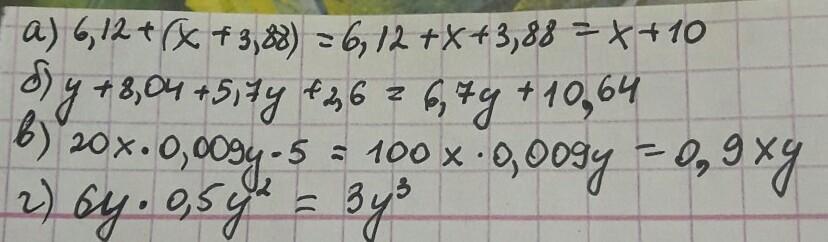 а) 6,12 + (x + 3,88) = 6,12 + x + 3,88 = x + 10
б) y + 8,04 + 5,7y + 2,6 = 6,7y + 10,64
в) 20x · 0,009y · 5 = 100x · 0,009y = 0,9xy
г) 6y · 0,5y² = 3y³